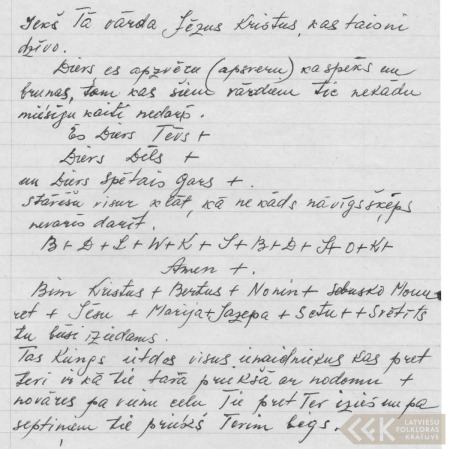 Iekš Tā vārda Jēzus Kristus, kas taisni
dzīvo.
Dievs es apzvēru (apsveru) ka spēks un
brunas, tam kas šiem vārdiem tic nekādu
miesīgu kaiti nedarīs.
Es Dievs Tēvs +
Dievs Dēls +
un Dievs Spētais Gars +.
stāvēšu visur klāt, kā nekāds nāvīgs šķēps
nevarēs darīt.
B + D + L + W + K + I + B + D + + O + K +
Amen +.
Bim Kristus + Bertus + Nonin +
ret + Jēsu + Marija + Jazepa + Setu + + Svētīts
tu būsi izdams.
Tas Kungs itdos visus ienaidniekus kas pret
tevi kā tie tavā priekšā ar nodomu +
novāres pa vienu ceļu Tie pret Tev izies un pa
septiņiem tie priekš Tevim begs.
LATVIEŠU
FOLKLORAS
KRĀTUVE